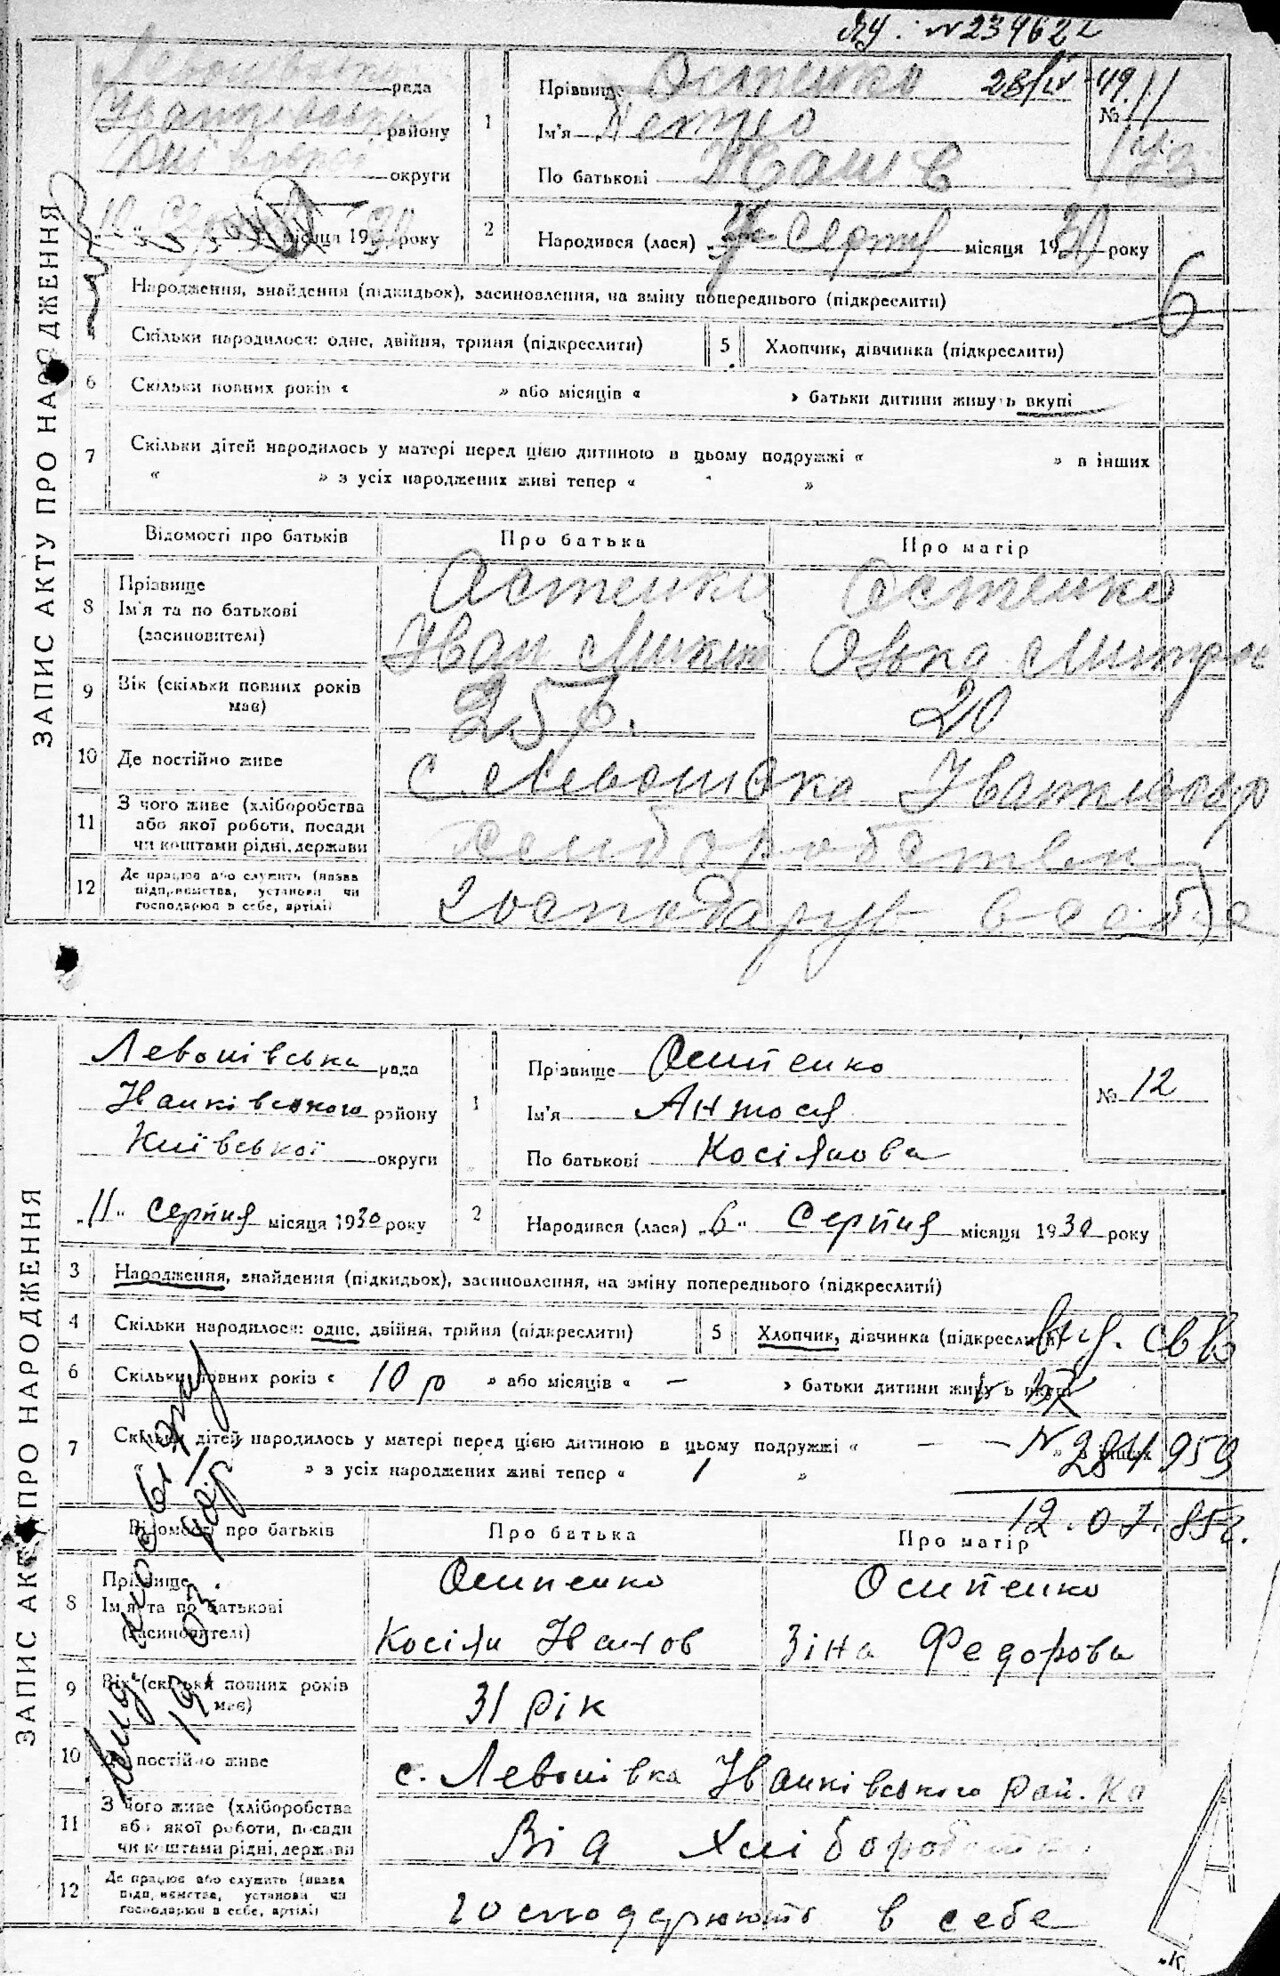 № 239622
рада
району
округи
місяця 1930 року
1
Прізвище Остенко 28/IV-49
Ім'я Петро
По батькові Іванів
№ 11
2
Народився (лася) Серпня місяця 1930 року
6
ЗАПИС АКТУ ПРО НАРОДЖЕННЯ
Народження, знайдення (підкидьок), засиновлення, на зміну попереднього (підкреслити)
Скільки народилося: одне, двійня, трійня (підкреслити)
5
Хлопчик, дівчинка (підкреслити)
6
Скільки повних років « » або місяців « » батьки дитини живуть вкупі
7
Скільки дітей народилось у матері перед цією дитиною в цьому подружжі « » в інших
« » з усіх народжених живі тепер « »
Відомості про батьків
Про батька
Про матір
8
Прізвище
Ім'я та по батькові
(засиновителі)
Остенко
Остенко
Іван Микит
Олька Митро
9
Вік (скільки повних років
має)
25 р.
20
10
Де постійно живе
с. Левонівка Іванків
11
З чого живе (хліборобства
або якої роботи, посади
чи коштами рідні, держави
хліборобства
12
Де працює або служить (назва
підприємства, установи чи
господарює в себе, артілі)
господарує в себе
Левонівська рада
Іванківського району
Київської округи
"11" Серпня місяця 1930 року
1
Прізвище Осипенко
Ім'я Антося
По батькові Косіянова
№ 12
2
Народився (лася) "6" Серпня місяця 1930 року
ЗАПИС АКТУ ПРО НАРОДЖЕННЯ
3
Народження, знайдення (підкидьок), засиновлення, на зміну попереднього (підкреслити)
4
Скільки народилося: одне, двійня, трійня (підкреслити)
5
Хлопчик, дівчинка (підкреслити)
св.
6
Скільки повних років « 10 р » або місяців « – » батьки дитини живуть вкупі
7
Скільки дітей народилось у матері перед цією дитиною в цьому подружжі « – – » в інших
№ 284959
» з усіх народжених живі тепер « 1 »
12.07.85г.
Відомості про батьків
Про батька
Про матір
8
Прізвище
Ім'я та по батькові
(засиновителі)
Осипенко
Осипенко
Косіян Іванов
Зіна Федорова
9
Вік (скільки повних років
має)
31 рік
10
Де постійно живе
с. Левонівка Іванківського рай. Ки
11
З чого живе (хліборобства
або якої роботи, посади
чи коштами рідні, держави
Від хліборобства
12
Де працює або служить (назва
підприємства, установи чи
господарює в себе, артілі)
господарюють в себе